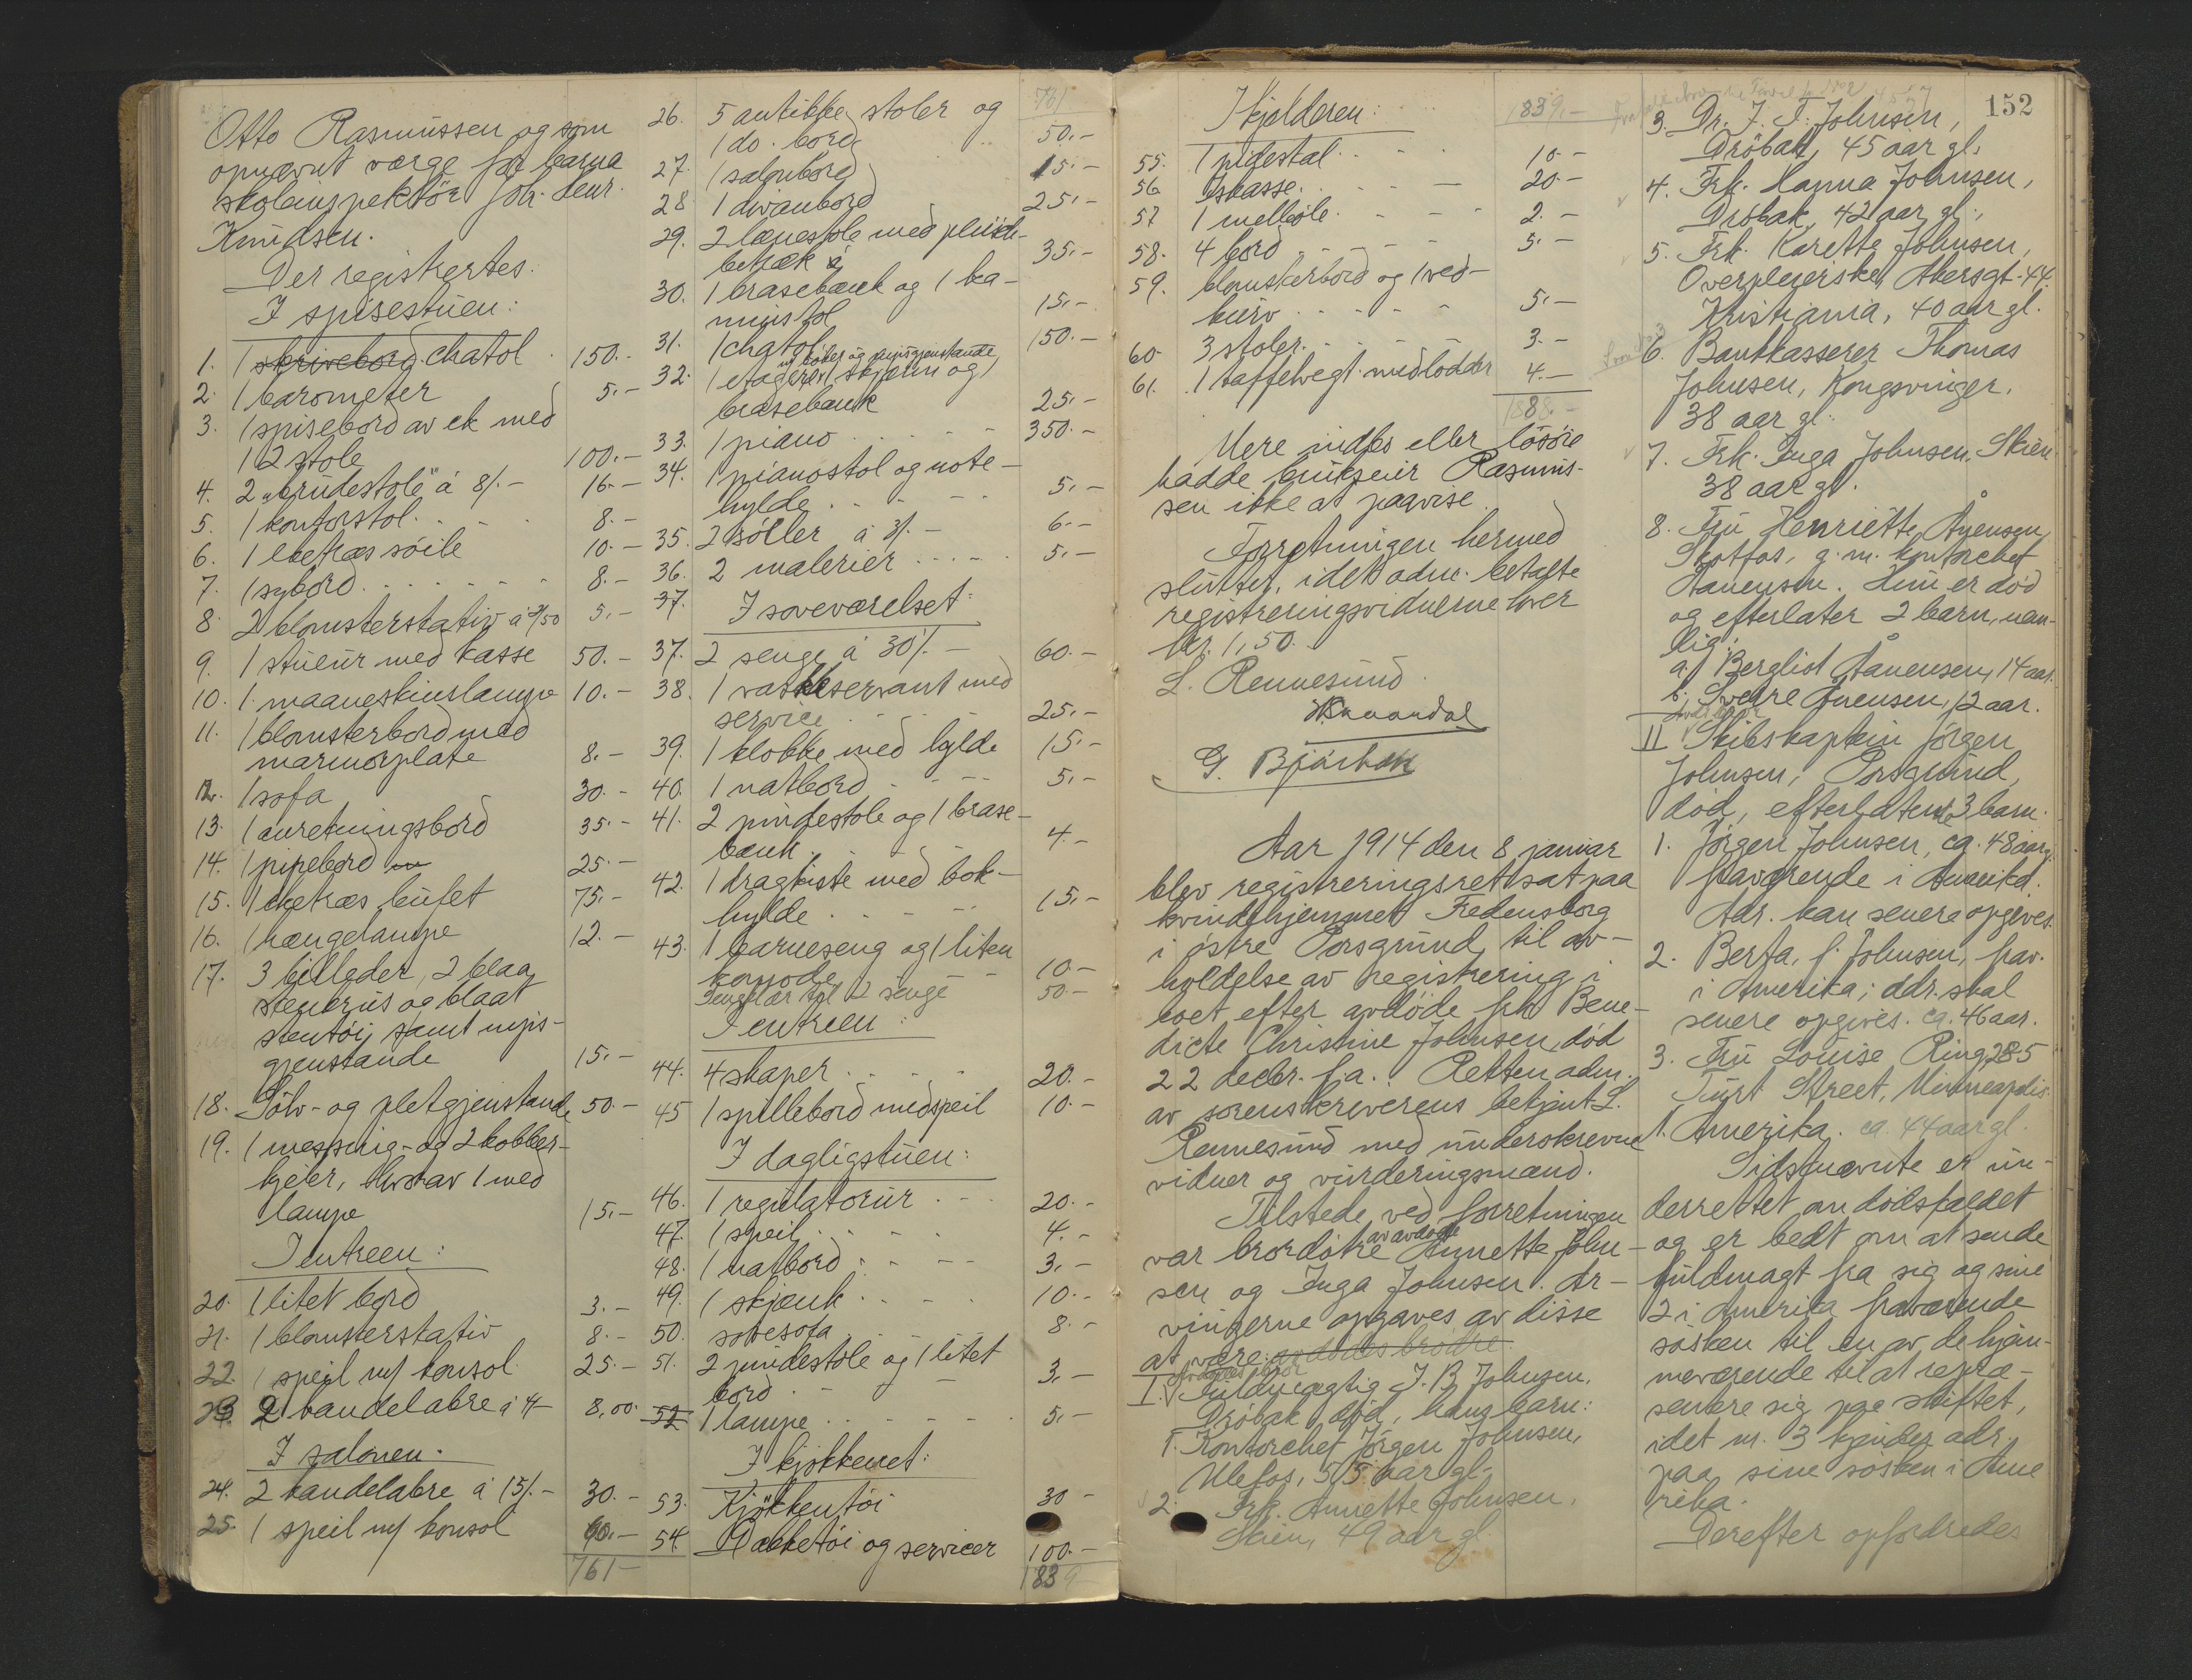 Otto Rasmussen og som
opnævnt værge for barna
skoleinspektör Joh. Henr.
Knudsen.
Der registrertes.
I spisestuen:
1. 1 skrivebord chatol 150.-
2. 1 barometer 5.-
3. 1 spisebord av ek med
12 stole 100.-
4. 2 "brudestole" á 8/.- 16.-
5. 1 kontorstol 8.-
6. 1 eketræs söile 10.-
7. 1 sybord 8.-
8. 2 blomsterstativ á 2/50 5.-
9. 1 stueur med kasse 50.-
10. 1 maaneskinslampe 10.-
11. 1 blomsterbord med
marmorplate 8.-
12. 1 sofa 30.-
13. 1 anretningsbord 35.-
14. 1 pipebord 25.-
15. 1 eketræs bufet 75.-
16. 1 hængelampe 12.-
17. 3 billeder, 2 blaa
stenkrus og blaat
stentöi samt nips-
gjenstande 15.-
18. Sölv- og pletgjenstande 50.-
19. 1 messing- og 2 kobber-
kjeler, hvorav 1 med
lampe 15.-
I entreen:
20. 1 litet bord 3.-
21. 1 blomsterstativ 8.-
22. 1 speil m/ konsol 25.-
23. 2 kandelabre á 4- 8,00
I salonen.
24. 2 kandelabre á 15/.- 30.-
25. 1 speil m/ konsol 60.-
761-
761
26. 5 antikke stoler og
1 do. bord 50.-
27. 1 salonbord 15.-
28 1 divanbord 25.-
29. 2 lænestole med plüsch-
betræk 35.-
30. 1 krasebænk og 1 ka-
minstol 15.-
31. 1 chatol 150.-
m/ böker og nipsgjenstande
32. 1 etagere, 1 skjærm og 1
krasebænk 25.-
33. 1 piano 350.-
34. 1 pianostol og note-
hylde 5.-
35. 2 söiler á 3/.- 6.-
36. 2 malerier 5.-
37. I soveværelset:
37. 2 senge á 30/.- 60.-
38. 1 vaskeservant med
service 25.-
39. 1 klokke med hylde 15.-
40. 1 natbord 5.-
41. 2 pindestole og 1 krase-
bænk 4.-
42. 1 dragkiste med bok-
hylde 15.-
43. 1 barneseng og 1 liten
komode 10.-
Sengklær til 2 senge 50-
I entreen:
44. 4 skaper 20.-
45 1 spillebord med speil 10.-
I dagligstuen:
46. 1 regulatorur 20.-
47. 1 speil 4.-
48. 1 natbord 3.-
49. 1 skjænk 10.-
50. sovesofa 8.-
51. 2 pindestole og 1 litet
bord 3.-
52 1 lampe 5.-
I kjökkenet:
53. Kjökkentöi 30-
54. Dækketöi og servicer 100.-
1839-
I kjelderen: 1839.-
55. 1 pidestal 10.-
56 Iskasse 20.-
57 1 melböle 2.-
58. 4 bord 5.-
59. blomsterbord og 1 ved-
kurv 5.-
60. 3 stoler 3.-
61. 1 taffelvegt med lodder 4.-
1888.-
Mere indbo eller lösöre
hadde brukseier Rasmus-
sen ikke at paavise.
Forretningen hermed
sluttet, idet adm. betalte
registreringsvidnerne hver
kr. 1,50.
L. Rennesund.
G. Bjärbæk
Aar 1914 den 8 januar
blev registreringsret sat paa
kvindehjemmet Fredensborg
i östre Porsgrund til av-
holdelse av registrering i
boet efter avdöde frk Bene-
dicte Christine Johnsen, död
22 decbr. f.a. Retten adm.
av sorenskriverens betjent L.
Rennesund med underskrevne
vidner og vurderingsmænd.
Tilstede ved forretningen
av avdöde
var brordötre Annette John-
sen og Inga Johnsen. Ar-
vingerne opgaves av disse
at være: avdödes brödre
Avdödes bror
I. Fuldmægtig J. B. Johnsen,
Dröbak, död, hans barn:
1. Kontorchef Jörgen Johnsen,
Ulefos, 55 aar gl.
2. Frk. Annette Johnsen,
Skien, 49 aar gl.
152
3. Dr. J. F. Johnsen,
Dröbak, 45 aar gl.
4. Frk. Hanna Johnsen,
Dröbak, 42 aar gl.,
5. Frk. Karette Johnsen,
Overpleierske, Akersgt. 44.
Kristiania, 40 aar gl.
6. Bankkasserer Thomas
Johnsen, Kongsvinger,
38 aar gl.
7. Frk. Inga Johnsen, Skien
38 aar gl.
8. Fru Henriette Ånensen,
Skotfos, g.m. kontorchef
Aanensen. Hun er död
og efterlater 2 barn, nem-
lig:
a. Bergliot Åanensen, 14 aar.
b. Sverre Ånensen, 12 aar.
Avdödes bror
II Skibskaptein Jörgen
Johnsen, Porsgrund,
död, efterlatende 3 barn.
1. Jörgen Johnsen, ca. 48 aar,
fraværende i Amerika.
Adr. kan senere opgives.
2. Berta, f. Johnsen, frav.
i Amerika; adr. skal
senere opgives. ca. 46 aar.
3. Fru Louise Ring, 285
Street, Minneapolis.
Amerika. ca. 44 aar gl.
Sidstnævnte er un-
derrettet om dödsfaldet
og er bedt om at sende
fuldmagt fra sig og sine
2 i Amerika fraværende
sösken til en av de hjem-
meværende til at repræ-
sentere sig paa skiftet,
idet nr. 3 kjender adr.
paa sine sösken i Ame
rika.
Derefter opfordredes